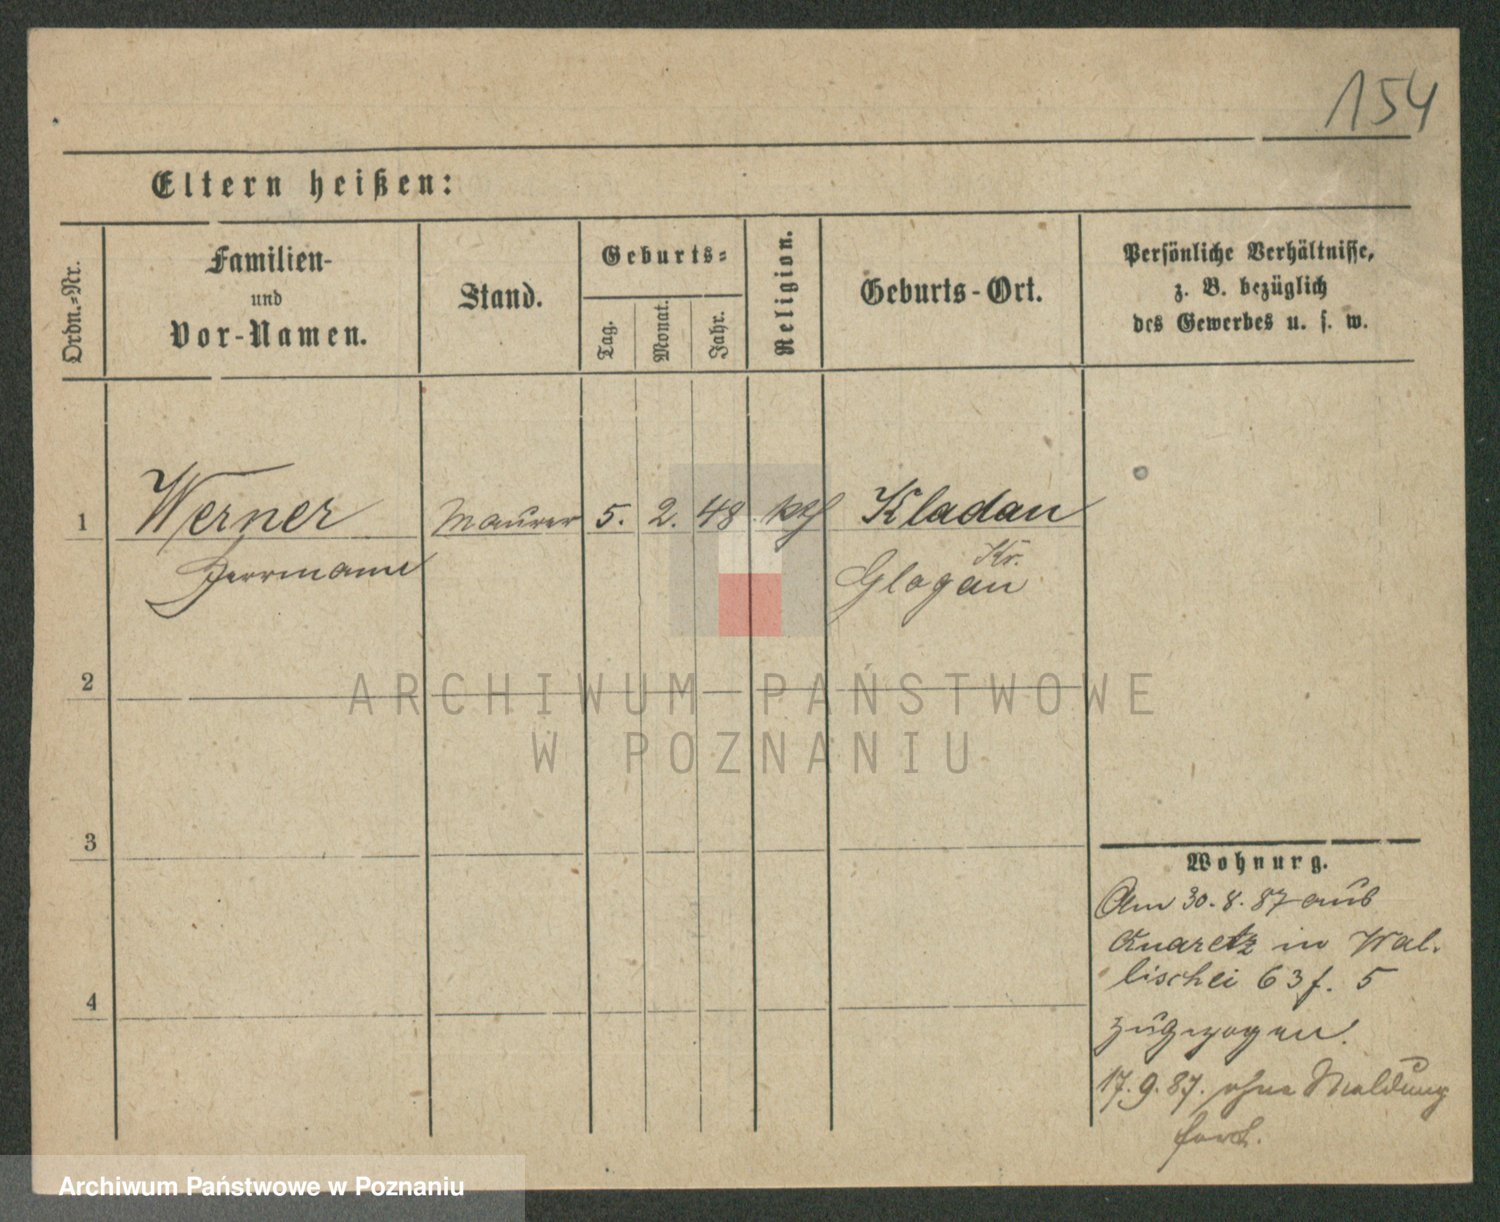 154
Eltern heißen:
Ordn.-Nr.
Familien-
und
Vor-Namen.
Stand.
Geburts-
Tag.
Monat.
Jahr.
Religion.
Geburts-Ort.
Persönliche Verhältnisse,
z. B. bezüglich
des Gewerbes u. s. w.
1
Werner
Herrmann
Maurer
5.
2.
48
Kladau
Kr.
Glogau
2
ARCHIWUM PAŃSTWOWE
W POZNANIU
3
4
Wohnurg.
Am 30. 8. 87 aus
in Wal-
lischei 63 f. 5
zugezogen.
17. 9. 87. ohne Meldung
fort.
Archiwum Państwowe w Poznaniu